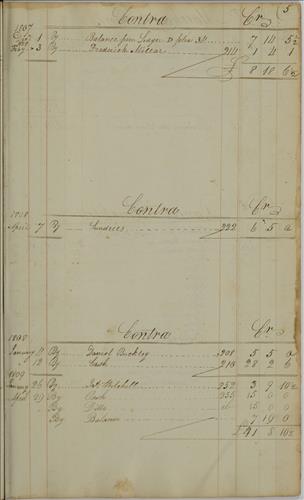 5
Contra Cr
1807
Oct 1 By Balance from Ledger D folio 34 7 14 5½
1808
Feby 3 By Frederick Millar 214 1 4 1
£ 8 18 6½
Contra Cr
1808
April 7 By Sundries 222 6 5 0
Contra Cr
1808
January 11 By Daniel Buckley 208 5 5 0
" 12 By Cash 218 28 2 6
1809
January 26 By Jas Mitchell 252 3 9 10½
April 29 By Cash 255 15 0 0
By Ditto 15 0 0
By Balance 7 19 0
£ 41 8 10½